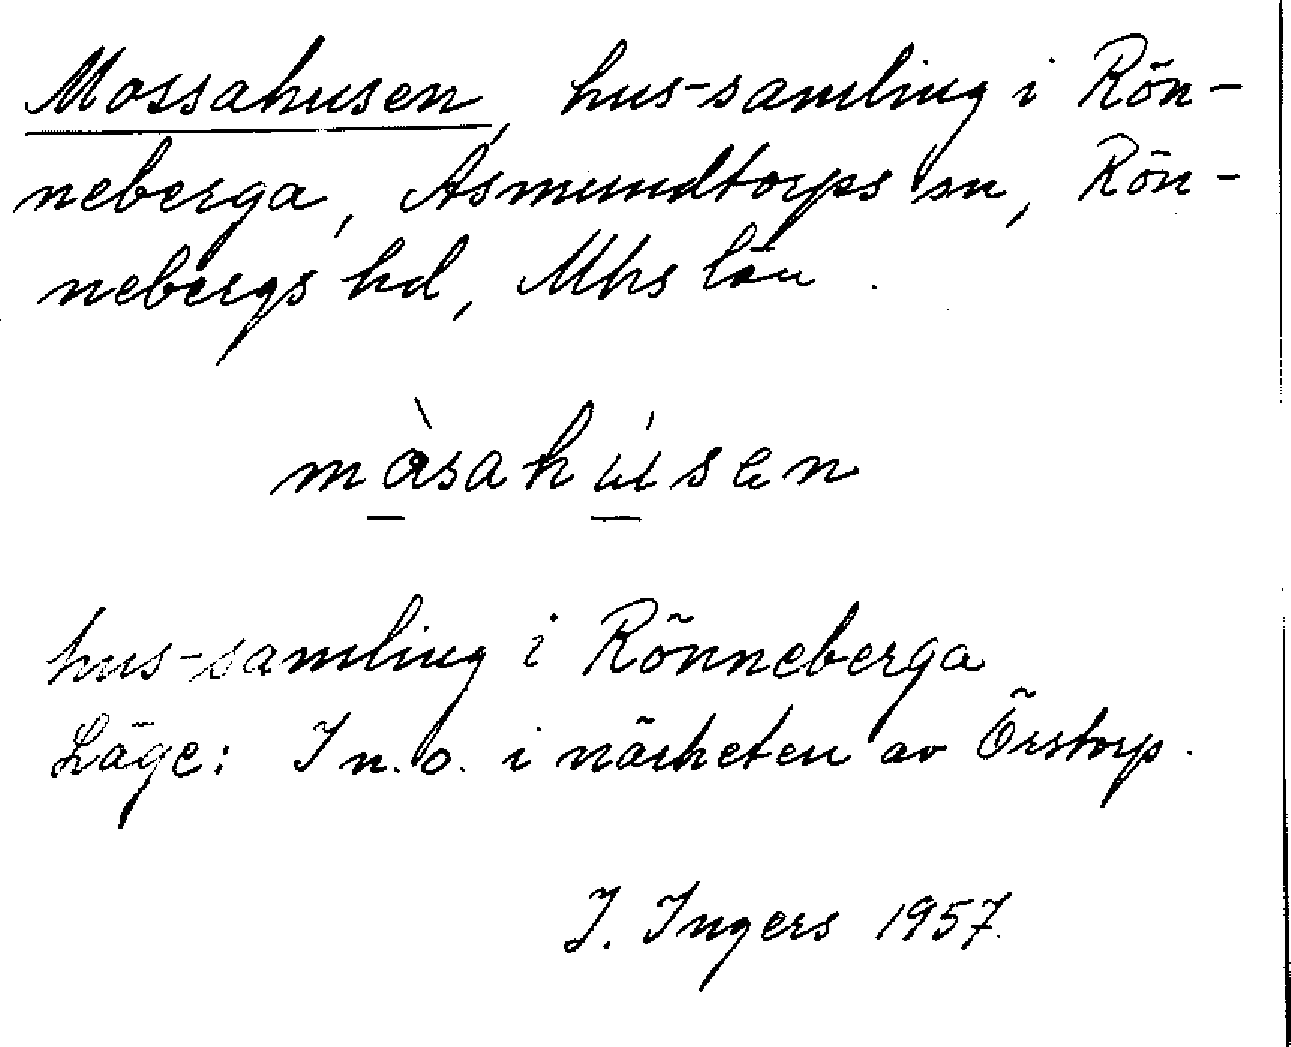 Mossahusen, hus-samling i Rön-
neberga, Asmundtorps sn, Rön-
nebergs hd, Mhs län.
måsahúsen
hus-samling i Rönneberga
Läge: I n. o. i närheten av Örstorp.
I. Ingers 1957.